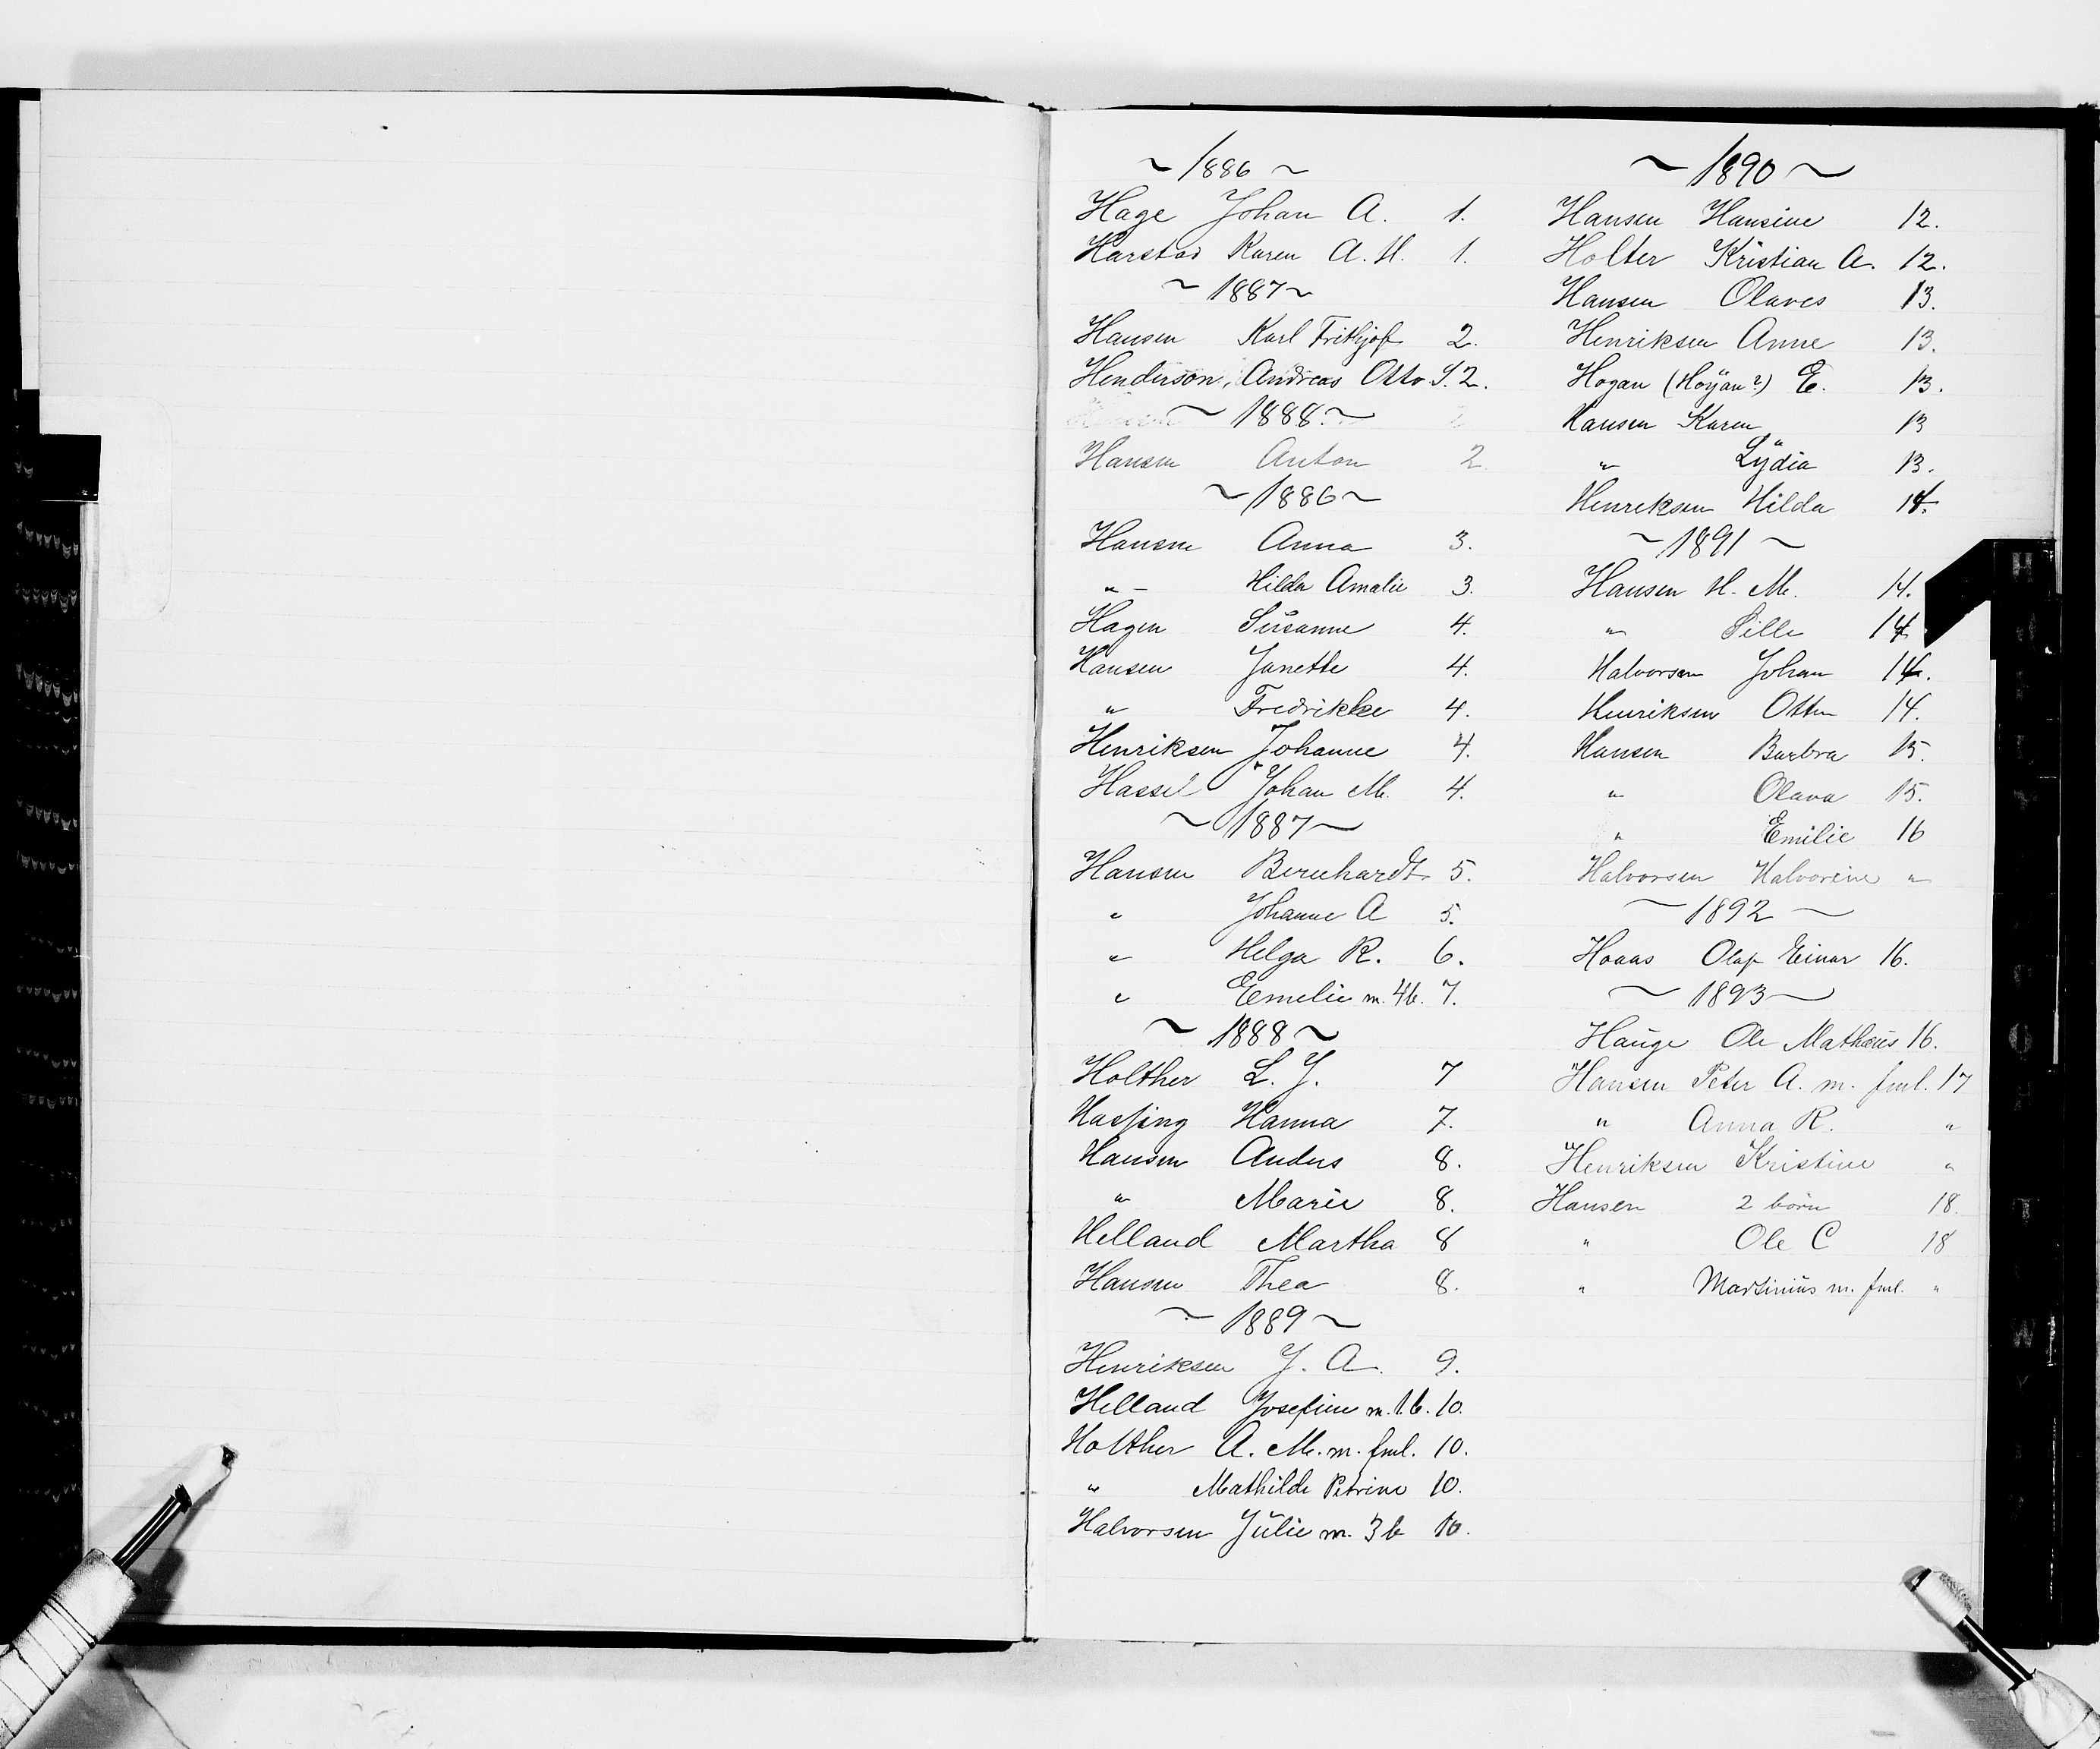 ~ 1886 ~
Hage Johan A. 1.
Harstad Karen A. H. 1.
~ 1887 ~
Hansen Karl Frithjof 2.
Henderson, Andreas Otto S. 2.
~ 1888. ~
Hansen Anton 2
~ 1886 ~
Hansen Anna 3.
" - Hilda Amalie 3.
Hagen Susanne 4.
Hansen Janette 4.
" Fredrikke 4.
Henriksen Johanne 4.
Hassel Johan M. 4.
~ 1887 ~
Hansen Bernhardt 5.
" Johanne A 5.
" Helga R. 6.
" Emelie m. 4 b. 7.
~ 1888 ~
Holther L. J. 7
Hasfing Hanna 7.
Hansen Andus 8.
" Marie 8.
Helland Martha 8
Hansen Thea 8.
~ 1889 ~
Henriksen J. A. 9.
Helland Josefine m. 1. b. 10.
Holther A. M. m. fml. 10.
" Mathilde Petrine 10.
Halvorsen Julie m. 3 b 10.
~ 1890 ~
Hansen Hansine 12.
Holter Kristian A. 12.
Hansen Olaves 13.
Henriksen Anne 13.
Hogan (Höyan?) E. 13.
Hansen Karen 13
" Lydia 13.
Henreksen Hilda 14.
~ 1891 ~
Hansen H. M. 14.
" Pille 14.
Halvorsen Johan 14.
Henriksen Otto 14.
Hansen Barbra 15.
" Olava 15.
" Emilie 16
Halvorsen Halvorine "
~ 1892 ~
Hoaas Olaf Einar 16.
~ 1893 ~
Hauge Ole Mathæus 16.
Hansen Peter A. m. fml. 17
" Anna R. "
Henriksen Kristine "
Hansen 2 börn 18.
" Ole C 18
" Martinius m. fml. "